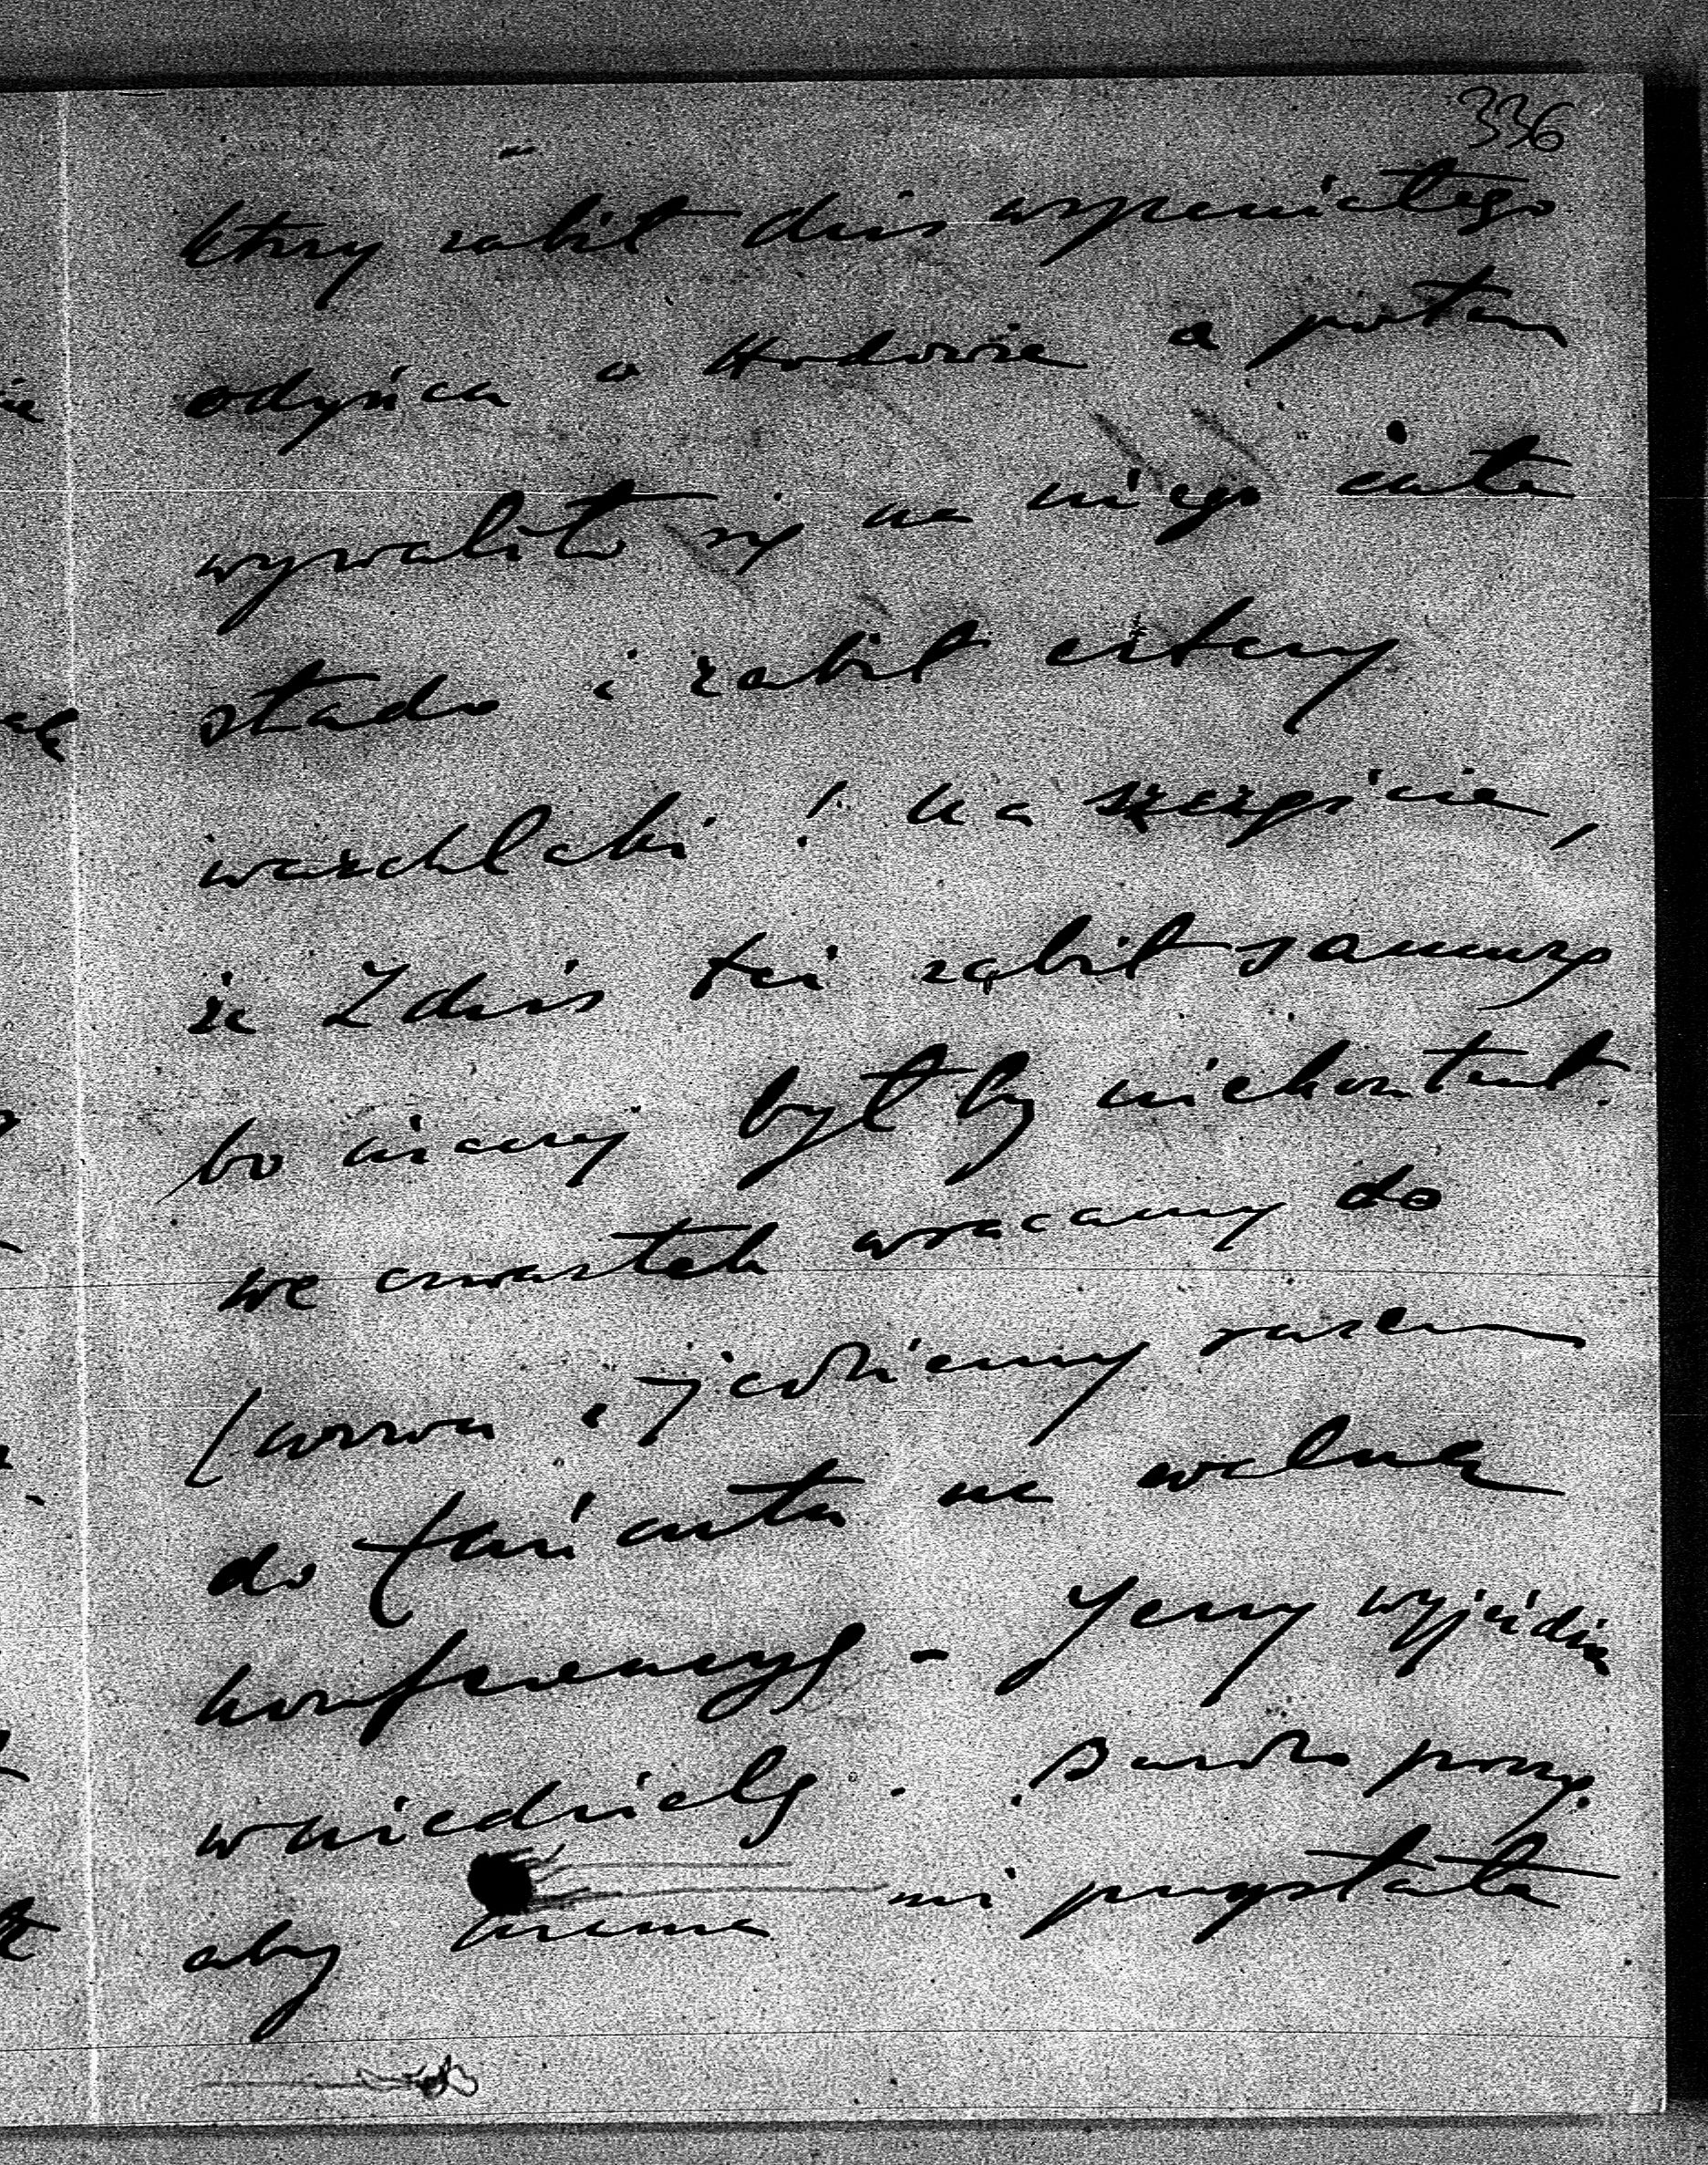 336
który zabił dziś wspaniałego
odyńca w Hodowie a potem
wywaliło się na niego całe
stado i zabił cztery
warchlaki! Na szczęście,
że Zdziś też zabił samurę
bo inaczej byłby niekontent.
We czwartek wracamy do
Lwowa i jedziemy razem
do Łańcuta na walną
konferencyę - Jerzy wyjeżdża
w niedzielę. Bardzo proszę
aby mama mi przysłała